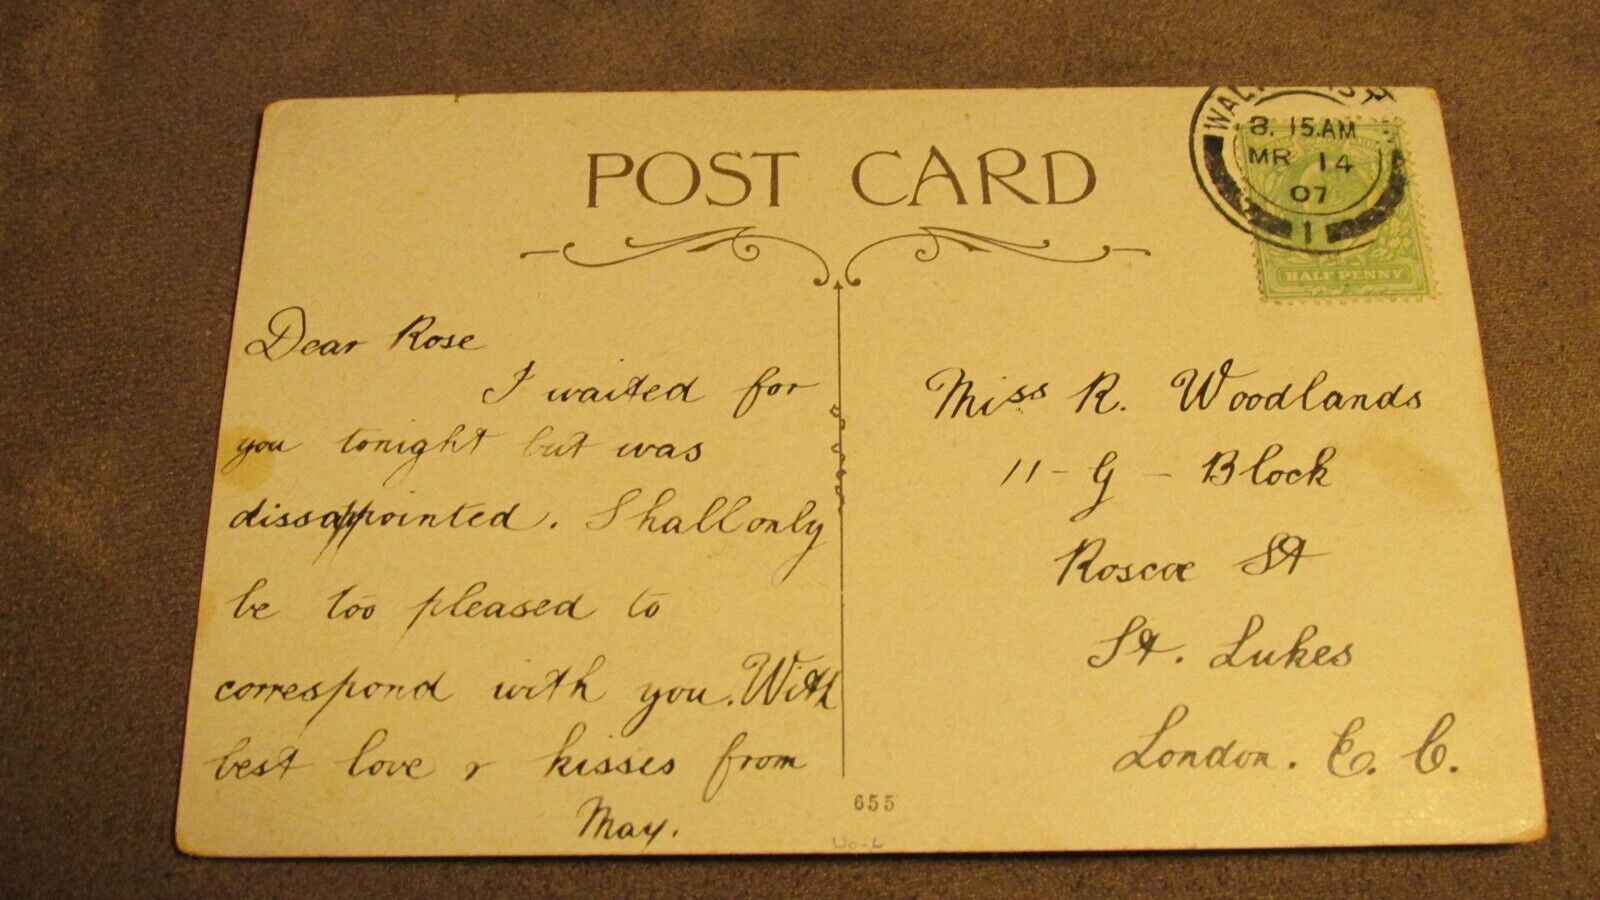 POST CARD
8. 15.AM
MR 14
07
1
HALF PENNY
Dear Rose
I waited for
you tonight but was
dissappointed. Shall only
be too pleased to
correspond with you. With
best love & kisses from
May.
Miss R. Woodlands
11 - G - Block
Roscoe St
St. Lukes
London. E. C.
655